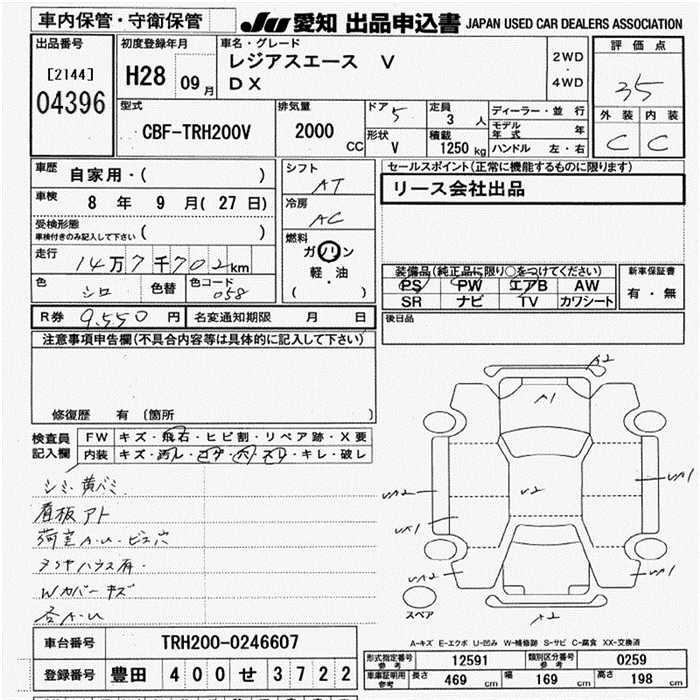 車内保管・守衛保管
JU 愛知 出品申込書 JAPAN USED CAR DEALERS ASSOCIATION
出品番号
[2144]
04396
初度登録年月
H28 09月
車名・グレード
レジアスエース V
DX
2WD
・
4WD
評価点
35
外装 内装
C C
型式
CBF-TRH200V
排気量
2000 CC
ドア 5
定員 3 人
形状 V
積載 1250 kg
ディーラー・並行
モデル年式 年
ハンドル 左・右
車歴 自家用・( )
車検 8 年 9 月( 27 日)
受検形態
車検付きのみ記入して下さい ( )
走行 14万7千702km
色 シロ 色替 色コード 058
シフト AT
冷房 AC
燃料
ガソリン
軽・油
( )
セールスポイント(正常に機能するものに限ります)
リース会社出品
装備品(純正品に限り○をつけてください)
PS PW エアB AW
SR ナビ TV カワシート
新車保証書
有・無
R券 9,550 円 名変通知期限 月 日
後日品
注意事項申告欄(不具合内容等は具体的に記入して下さい)
修復歴 有 〔箇所 〕
検査員記入欄
FW キズ・飛石・ヒビ割・リペア跡・X要
内装 キズ・汚レ・コゲ・穴・スレ・キレ・破レ
シミ 黄バミ
看板アト
荷室A・U・ビス穴
Wカバーキズ
各A・U
A2
A1
V2
A2
スペア
A-キズ E-エクボ U-凹み W-補修跡 S-サビ C-腐食 XX-交換済
車台番号 TRH200-0246607
登録番号 豊田 400 せ 3722
形式指定番号 参考 12591 類別区分番号 参考 0259
車庫証明用 参考 長さ 469 cm 幅 169 cm 高さ 198 cm